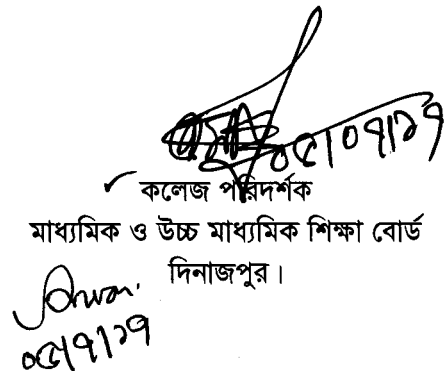 ০৫/০৭/১৭
কলেজ পরিদর্শক
মাধ্যমিক ও উচ্চ মাধ্যমিক শিক্ষা বোর্ড
দিনাজপুর।
০৫/৭/১৭